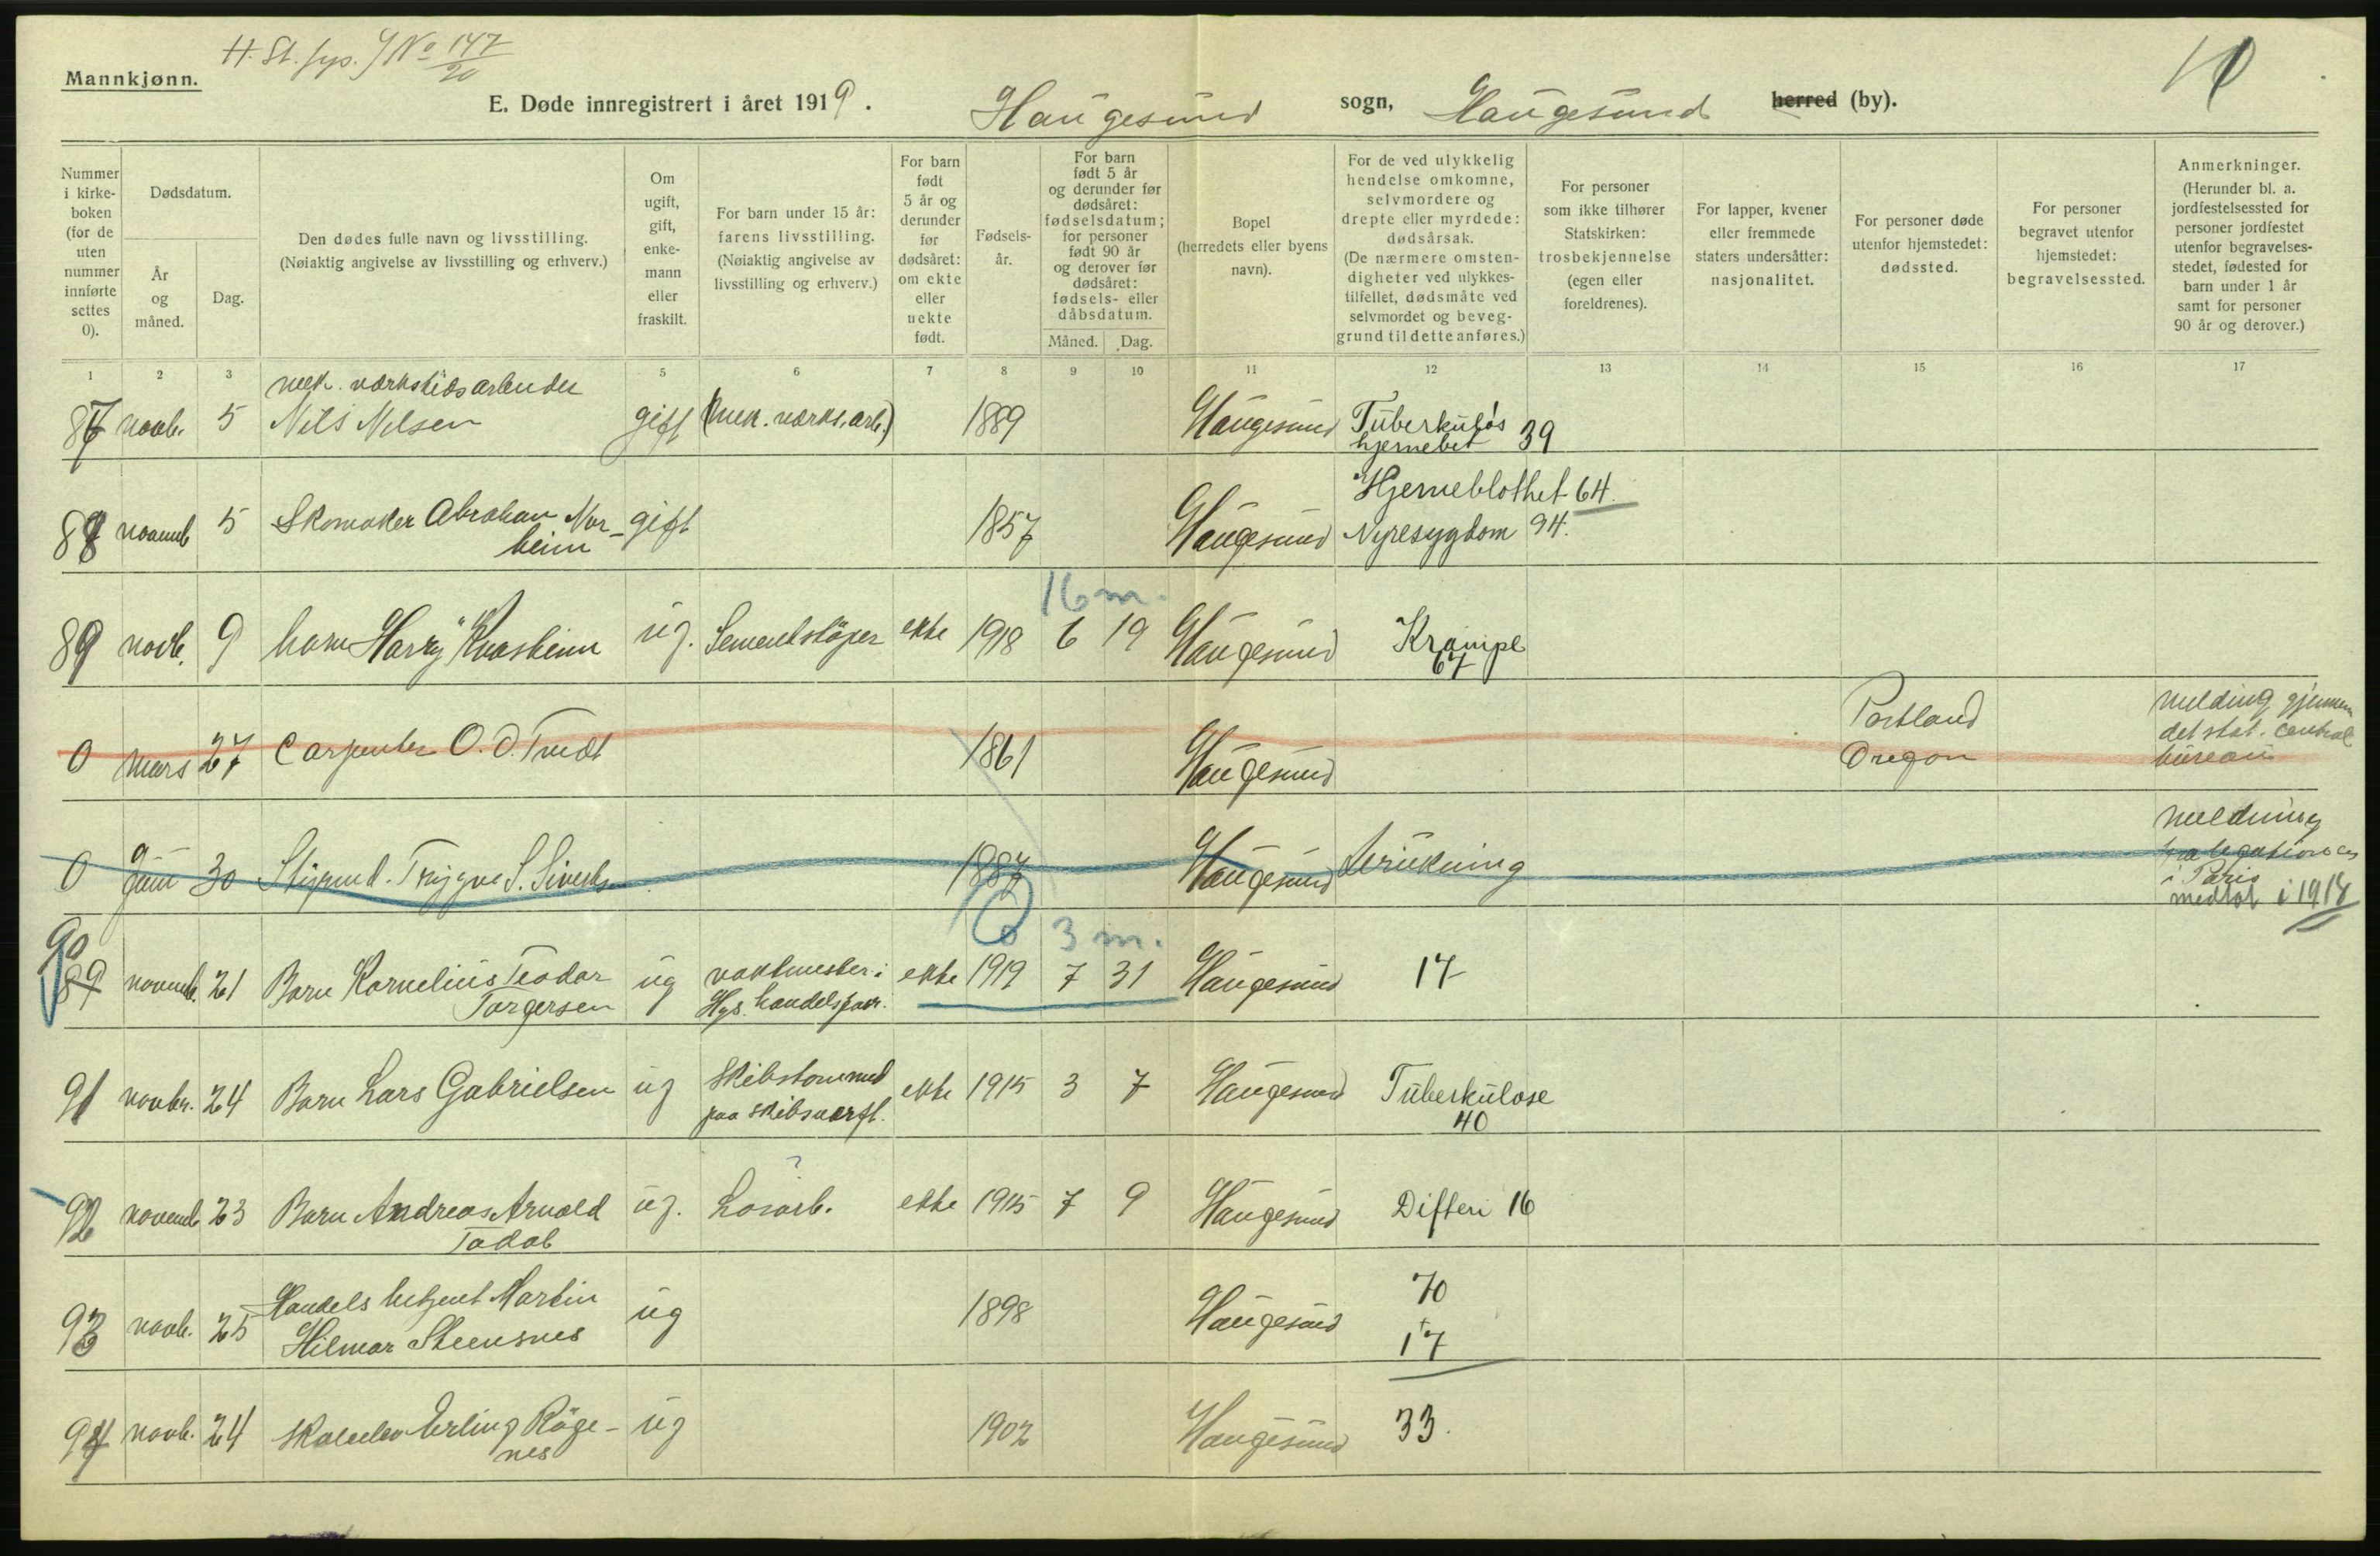 H. St. fys. No 147/20
10
Mannkjønn.
E. Døde innregistrert i året 1919. Haugesund sogn, Haugesund herred (by).
Nummer i kirkeboken (for de uten nummer innførte settes 0).
Dødsdatum.
År og måned.
Dag.
Den dødes fulle navn og livsstilling.
(Nøiaktig angivelse av livsstilling og erhverv.)
Om ugift, gift, enkemann eller fraskilt.
For barn under 15 år: farens livsstilling.
(Nøiaktig angivelse av livsstilling og erhverv.)
For barn født 5 år og derunder før dødsåret: om ekte eller uekte født.
Fødselsår.
For barn født 5 år og derunder før dødsåret: fødselsdatum; for personer født 90 år og derover før dødsåret: fødsels- eller dåbsdatum.
Måned. Dag.
Bopel (herredets eller byens navn).
For de ved ulykkelig hendelse omkomne, selvmordere og drepte eller myrdede: dødsårsak.
(De nærmere omstendigheter ved ulykkestilfellet, dødsmåte ved selvmordet og beveggrund til dette anføres.)
For personer som ikke tilhører Statskirken: trosbekjennelse (egen eller foreldrenes).
For lapper, kvener eller fremmede staters undersåtter: nasjonalitet.
For personer døde utenfor hjemstedet: dødssted.
For personer begravet utenfor hjemstedet: begravelsessted.
Anmerkninger.
(Herunder bl. a. jordfestelsessted for personer jordfestet utenfor begravelsesstedet, fødested for barn under 1 år samt for personer 90 år og derover.)
1 2 3 5 6 7 8 9 10 11 12 13 14 15 16 17
mek. værkstedsarbeider
87 novb. 5 Nils Nilsen gift (mek. værks. arb.) 1889 Haugesund Tuberkuløs
hjernebet 39
Hjerneblødhet 64.
88 novemb 5 Skomaker Abraham Nor- gift 1857 Haugesund Nyresygdom 94.
heim
16 m.
89 novb. 9 barn Harry Kvasheim ug. Sementstøper ekte 1918 6 19 Haugesund Krampe
67
0 mars 27 Carpenter O. O. Tvedt 1861 Haugesund Portland Oregon melding gjennem det stat. central bureau
0 Juni 30 Sigmund Trygve S. Sivertsen 1887 Haugesund Drukning melding fra legationen i Paris
medtat i 1918
90 3 m.
89 novemb. 21 Barn Kornelius Teodor ug vaktmester i ekte 1919 7 31 Haugesund 17
Torgersen Hgs. handelsfor.
91 novbr. 24 Barn Lars Gabrielsen ug skibstømmerm ekte 1915 3 7 Haugesund Tuberkulose
paa skibsverft. 40
?
92 novemb 23 Barn Andreas Arnold ug. Løsarb. ekte 1915 7 9 Haugesund Difteri 16
Handels betjent Martin 70
93 novb. 25 Hilmar Steensnes ug 1898 Haugesund + 17
94 novb. 24 skoleelev Erling Røge- ug 1902 Haugesund 33.
nes